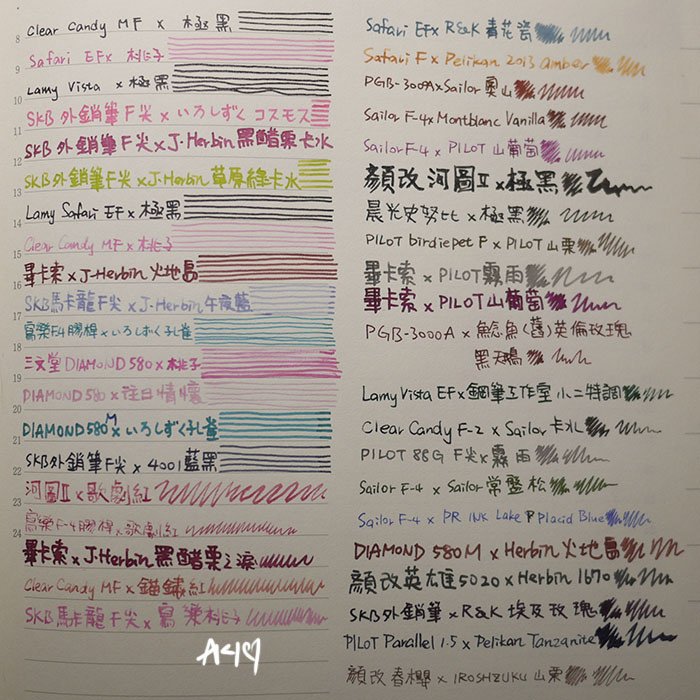 8
Clear Candy MF x 極黑
Safari EF x 桃子
9
Lamy Vista x 極黑
10
SKB 外銷筆 F尖 x いろしずく コスモス
11
SKB 外銷筆 F尖 x J-Herbin 黑醋栗卡水
12
SKB外銷筆F尖 x J-Herbin 草原綠卡水
13
Lamy Safari EF x 極黑
14
Clear Candy MF x 桃子
15
畢卡索 x J-Herbin 火地島
16
SKB馬卡龍 F尖 x J-Herbin 午夜藍
寫樂F4膠桿 x いろしずく孔雀
17
三文堂 DIAMOND 580 x 桃子
18
DIAMOND 580 x 往日情懷
20
DIAMOND 580 M x いろしずく孔雀
21
SKB外銷筆 F尖 x 4001 藍黑
22
河圖II x 歌劇紅
23
寫樂F-4膠桿 x 歌劇紅
24
畢卡索 x J-Herbin 黑醋栗之淚
Clear Candy MF x 錨鏽紅
SKB 馬卡龍 F尖 x 寫樂桃子
Safari EF x R&K 青花瓷
Safari F x Pelikan 2013 amber
PGB-300A x Sailor 奧山
Sailor F-4 x Montblanc Vanilla
Sailor F-4 x PILOT 山葡萄
顏改 河圖II x 極黑
晨光史努比 x 極黑
PILOT birdiepet F x PILOT 山栗
畢卡索 x PILOT 霧雨
畢卡索 x PILOT 山葡萄
PGB-3000A x 鯰魚(舊)英倫玫瑰
黑天鵝
Lamy Vista EF x 鋼筆工作室 小二特調
Clear Candy F-2 x Sailor 卡水
PILOT 88G F尖 x 霧雨
Sailor F-4 x Sailor 常盤松
Sailor F-4 x PR INK Lake P Placid Blue
DIAMOND 580 M x Herbin 火地島
顏改英雄5020 x Herbin 1670
SKB外銷筆 x R&K 埃及玫瑰
PILOT Parallel 1.5 x Pelikan Tanzanite
顏改 春櫻 x IROSHIZUKU 山栗